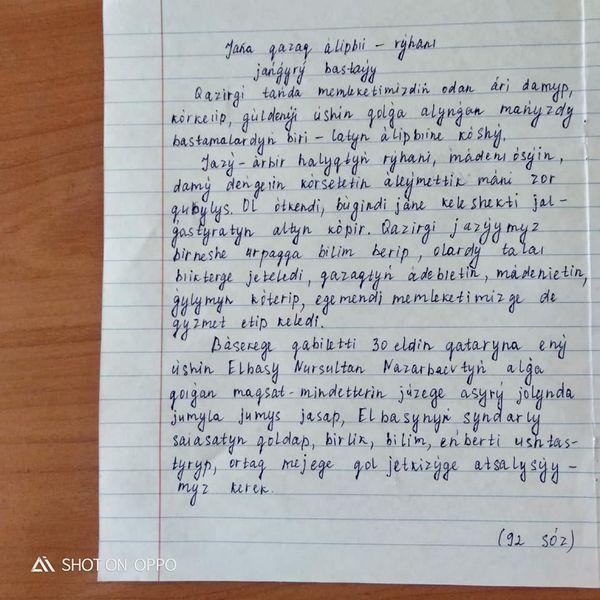 Jańa qazaq álipbıi – rýhanı
jańǵyrý bastaýy
Qazirgi tańda memleketimizdiń odan ári damyp,
kórkeıip, gúldenýi úshin qolǵa alynǵan mańyzdy
bastamalardyń biri – latyn álipbıine kóshý.
Jazý – árbir halyqtyń rýhanı, mádenı ósýin,
damý deńgeıin kórsetetin áleýmettik máni zor
qubylys. Ol ótkendi, búgindi jáne keleshekti jal-
ǵastyratyn altyn kópir. Qazirgi jazýymyz
birneshe urpaqqa bilim berip, olardy talaı
bıikterge jeteledi, qazaqtyń ádebıetin, mádenıetin,
ǵylymyn kóterip, egemendi memleketimizge de
qyzmet etip keledi.
Básekege qabiletti 30 eldiń qataryna ený
úshin Elbasy Nursultan Nazarbaevtyń alǵa
qoıǵan maqsat-mindetterin júzege asyrý jolynda
jumyla jumys jasap, Elbasynyń syndarly
saıasatyn qoldap, birlik, bilim, eńbekti ushtas-
tyryp, ortaq mejege qol jetkizýge atsalysýy-
myz kerek.
(92 sóz)
SHOT ON OPPO